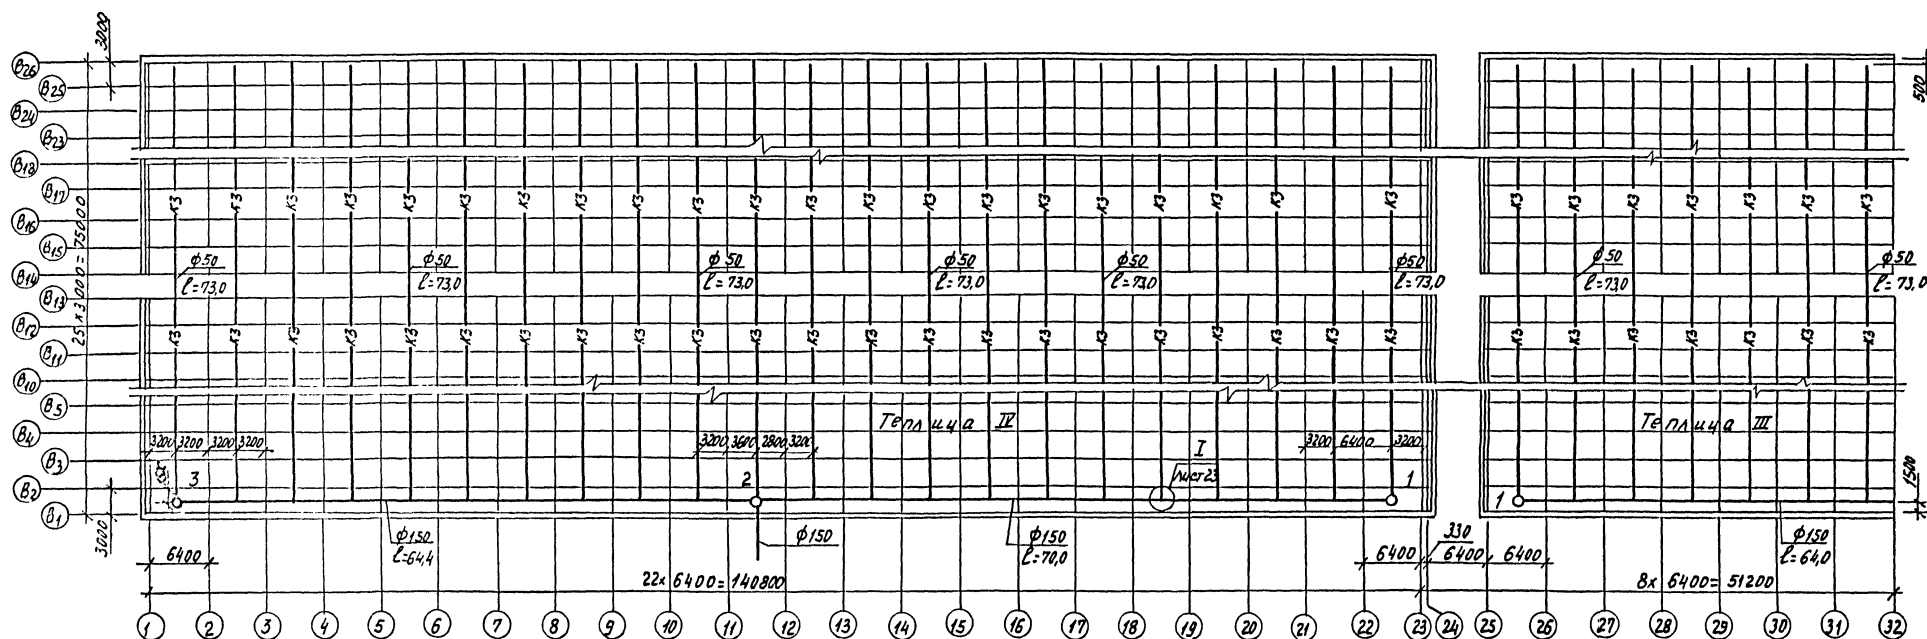 3000
В26
В25
В24
В23
В18
В17
В16
В15
В14
В13
В12
В11
В10
В5
В4
В3
В2
В1
25 х 3000 = 75000
3000
500
К3 К3 К3 К3 К3 К3 К3 К3 К3 К3 К3 К3 К3 К3 К3 К3 К3 К3 К3 К3 К3 К3 К3 К3 К3 К3 К3 К3
ф50
ℓ=73,0
ф50
ℓ=73,0
ф50
ℓ=73,0
ф50
ℓ=73,0
ф50
ℓ=73,0
ф50
ℓ=73,0
ф50
ℓ=73,0
ф50
ℓ=73,0
К3 К3 К3 К3 К3 К3 К3 К3 К3 К3 К3 К3 К3 К3 К3 К3 К3 К3 К3 К3 К3 К3 К3 К3 К3 К3 К3 К3 К3
Теплица IV
Теплица III
3200 3200 3200 3200
3200 3600 2800 3200
3200 6400 3200
I
лист 23
3
2
1
1
1500
ф150
ℓ=64,4
ф150
ф150
ℓ=70,0
ф150
ℓ=64,0
6400
6400
330
6400
6400
22х 6400= 140800
8х 6400= 51200
1 2 3 4 5 6 7 8 9 10 11 12 13 14 15 16 17 18 19 20 21 22 23 24 25 26 27 28 29 30 31 32